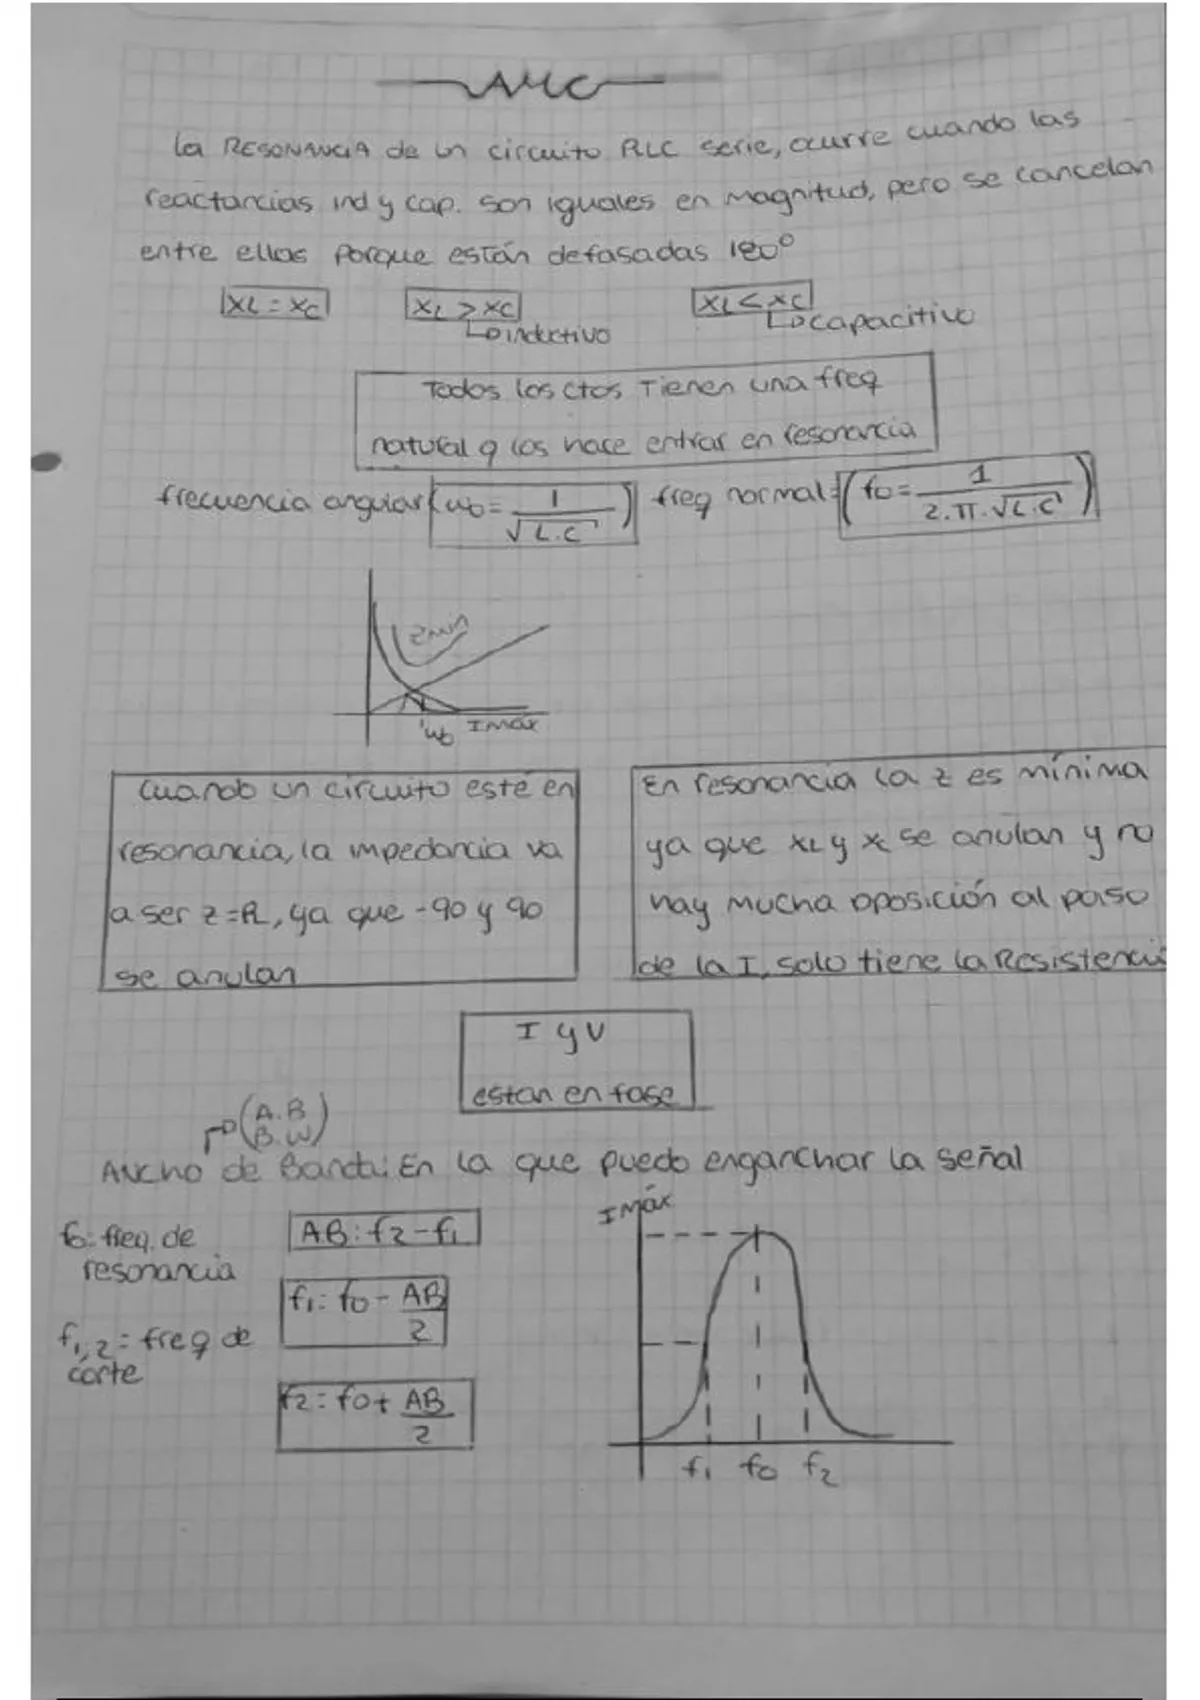 AMC
La RESONANCIA de un circuito RLC serie, ocurre cuando las
reactancias ind y cap. son iguales en magnitud, pero se cancelan
entre ellas porque están defasadas 180°
XL = XC
XL > XC
inductivo
XL < XC
capacitivo
Todos los ctos Tienen una freq
natural q los hace entrar en resonancia
frecuencia angular (ω0 = 1 / √L.C) freq normal = (f0 = 1 / 2.π.√L.C)
Zmin
ω0 Imáx
Cuando un circuito esté en
resonancia, la impedancia va
a ser z = R, ya que -90 y 90
se anulan
En resonancia la z es mínima
ya que XL y Xc se anulan y no
hay mucha oposición al paso
de la I, solo tiene la Resistencia
I y V
estan en fase
(A.B
B.W)
Ancho de Banda: En la que puedo enganchar la señal
f0: freq. de
resonancia
f1,2 = freq de
corte
AB: f2 - f1
f1: f0 - AB/2
f2: f0 + AB/2
Imáx
f1 f0 f2